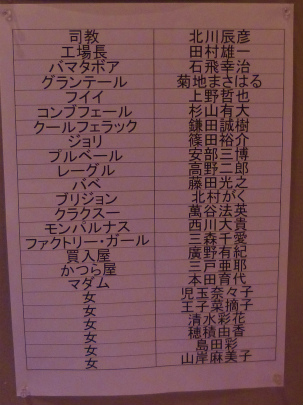 司教 北川辰彦
工場長 田村雄一
バマタボア 石飛幸治
グランテール 菊地まさはる
フイイ 上野哲也
コンブフェール 杉山有大
クールフェラック 鎌田誠樹
ジョリ 篠田裕介
プルベール 安部三博
レーグル 高野二郎
バベ 藤田光之
ブリジョン 北村がく
クラクスー 萬谷法英
モンパルナス 西川大貴
ファクトリー・ガール 三森千愛
買入屋 廣野有紀
かつら屋 三戸亜耶
マダム 本田育代
女 児玉奈々子
女 王子菜摘子
女 清水彩花
女 穂積由香
女 島田彩
女 山岸麻美子